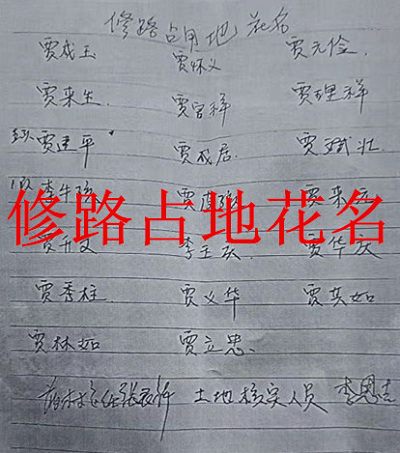 修路占用地花名
贾成玉 贾怀义 贾元俭
贾来生 贾官祥 贾理祥
贾建平 贾成居 贾斌壮
李牛 贾 贾来
修路占地花名
贾开文 李玉庆 贾华庆
贾秀柱 贾义华 贾其如
贾林如 贾立忠
土地核实人员 李恩吉